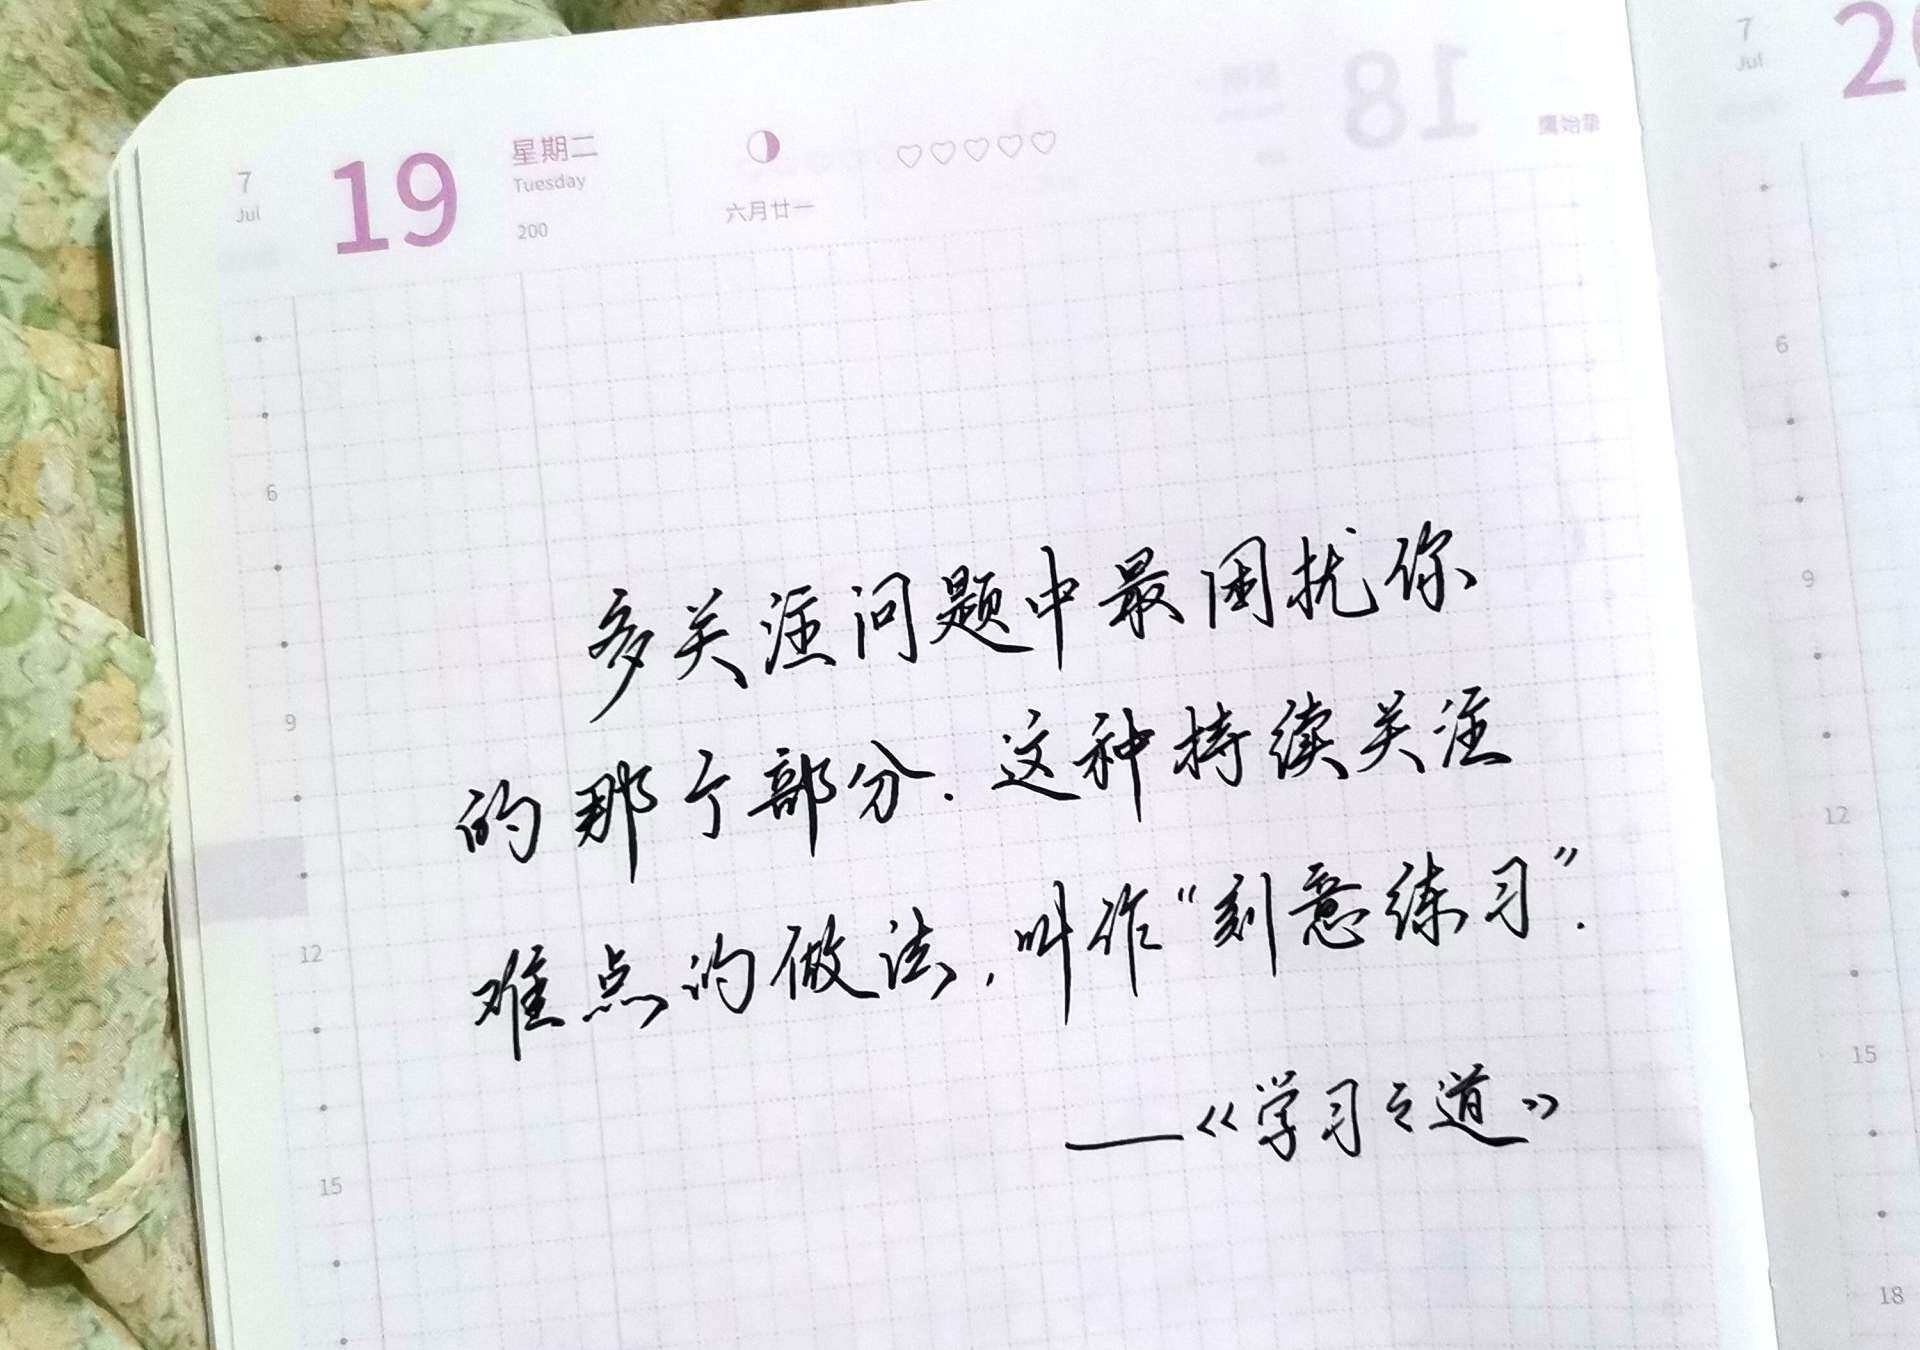 7
Jul
19
星期二
Tuesday
200
六月廿一
18
7
Jul
6
9
12
15
6
9
12
15
18
多关注问题中最困扰你
的那个部分.这种持续关注
难点的做法,叫作“刻意练习”.
——《学习之道》